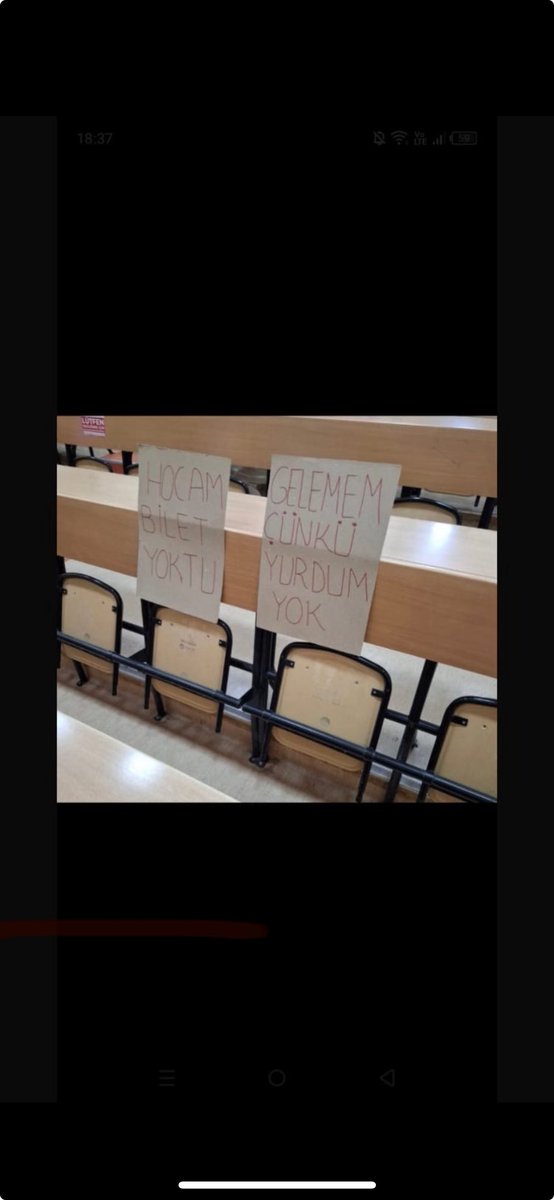 18:37
Vo
LTE
59
LÜTFEN
HOCAM
BİLET
YOKTU
GELEMEM
ÇÜNKÜ
YURDUM
YOK